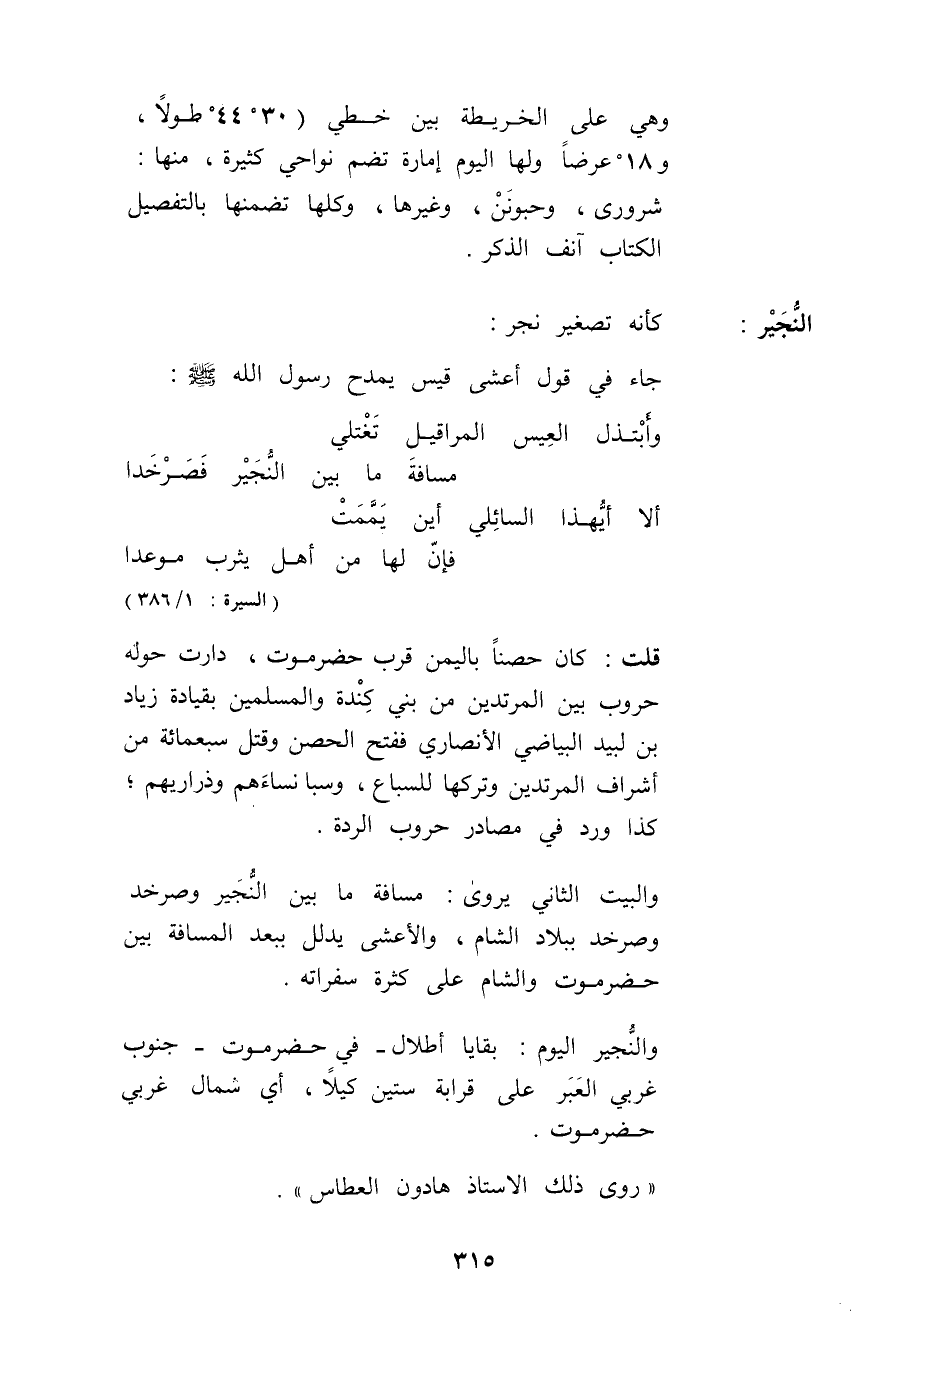 وهي على الخريطة بين خطي ( ٣٠ ° ٤٤ ° طولاً ،
و ١٨ ° عرضاً ولها اليوم إمارة تضم نواحي كثيرة ، منها :
شرورى ، وحبونَنْ ، وغيرها ، وكلها تضمنها بالتفصيل
الكتاب آنف الذكر .
النُّجَيْر : كأنه تصغير نجر :
جاء في قول أعشى قيس يمدح رسول الله ﷺ :
وأَبْتذل العِيس المراقيل تَغْتلي
مسافةَ ما بين النُّجَيْر فَصَرْخَدا
ألا أيُّهذا السائِلي أين يَمَّمَتْ
فإنّ لها من أهل يثرب موعدا
( السيرة : ١/ ٣٨٦ )
قلت : كان حصناً باليمن قرب حضرموت ، دارت حوله
حروب بين المرتدين من بني كِنْدة والمسلمين بقيادة زياد
بن لبيد البياضي الأنصاري ففتح الحصن وقتل سبعمائة من
أشراف المرتدين وتركها للسباع ، وسبا نساءَهم وذراريهم ؛
كذا ورد في مصادر حروب الردة .
والبيت الثاني يروىٰ : مسافة ما بين النُّجَير وصرخد
وصرخد ببلاد الشام ، والأعشى يدلل ببعد المسافة بين
حضرموت والشام على كثرة سفراته .
والنُّجير اليوم : بقايا أطلال - في حضرموت - جنوب
غربي العَبَر على قرابة ستين كيلًا ، أي شمال غربي
حضرموت .
« روى ذلك الاستاذ هادون العطاس » .
٣١٥